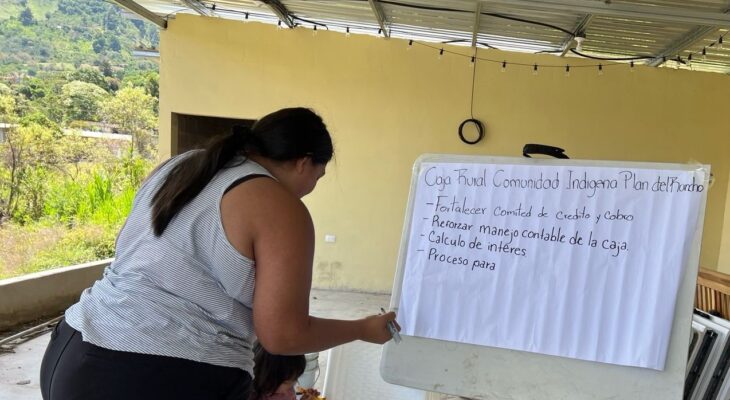 Caja Rural Comunidad Indigena Plan del Rancho
- Fortalecer Comited de Credito y Cobro
- Reforzar manejo contable de la caja.
- Calculo de intéres.
- Proceso para